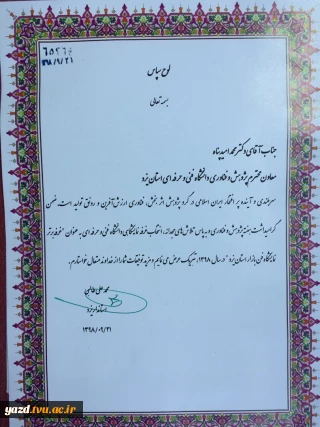 ۶۵۴۶۶
۹۸/۹/۲۱
لوح سپاس
بسمه تعالی
جناب آقای دکتر محمد امیدپناه
معاون محترم پژوهش و فناوری دانشگاه فنی و حرفه ای استان یزد
سربلندی و آینده پر افتخار ایران اسلامی در گرو پژوهش اثر بخش، فناوری ارزش آفرین و رونق تولید است، ضمن
گرامیداشت هفته پژوهش و فناوری و به پاس تلاش های مجدانه، انتخاب غرفه نمایشگاهی دانشگاه فنی و حرفه ای به عنوان "غرفه برتر
نمایشگاه فن بازار استان یزد" در سال ۱۳۹۸، تبریک عرض می نمایم و مزید توفیقات شما را از خداوند متعال خواستارم.
محمد علی طالبی
استاندار یزد
۱۳۹۸/۰۹/۲۱
yazd.tvu.ac.ir